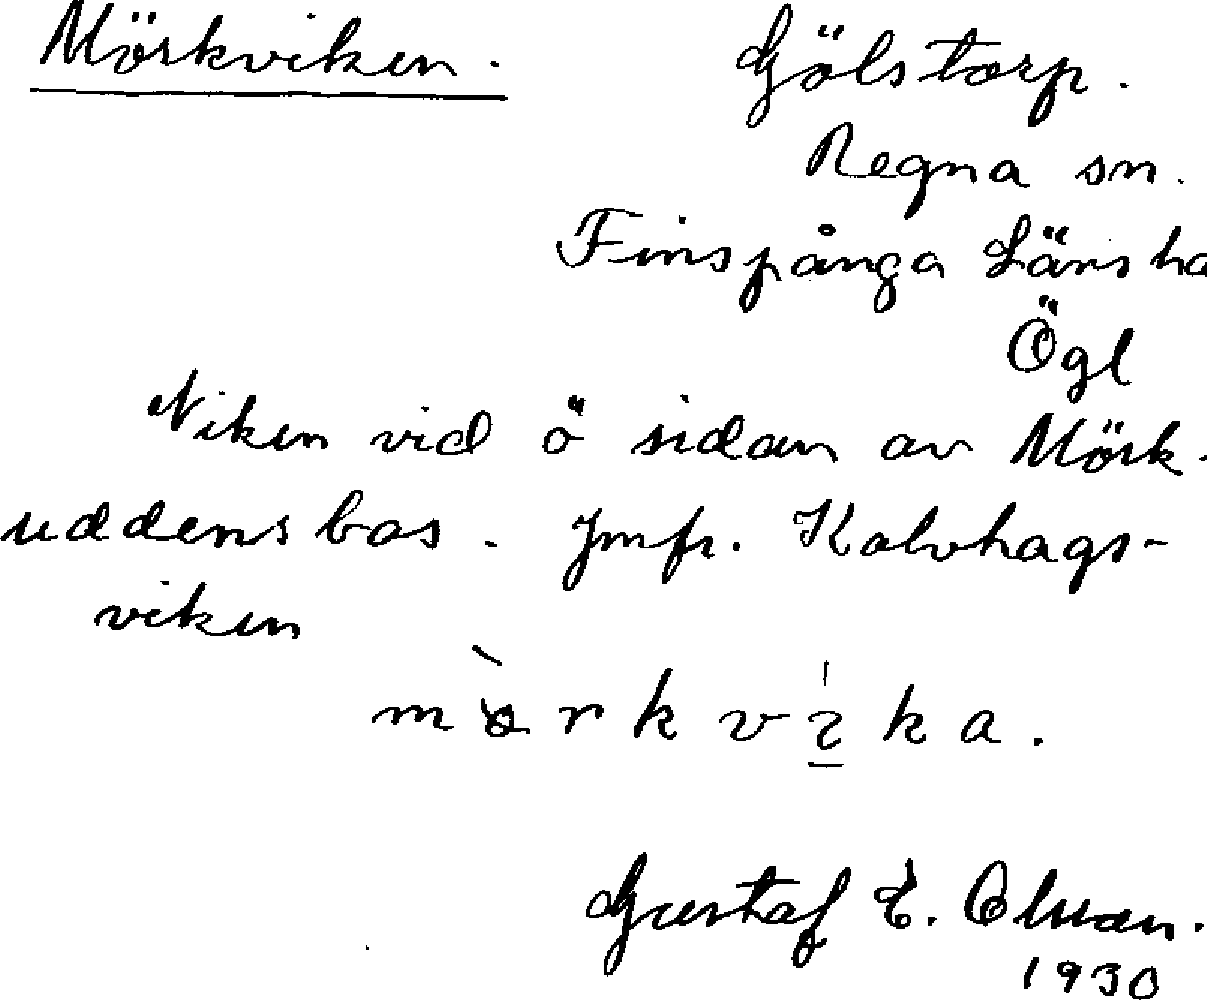 Mörkviken. Gölstorp.
Regna sn.
Finspånga Läns ha
Ögl
Viken vid ö sidan av Mörk-
uddens bas. Jmfr. Kalvhags-
viken
Gustaf E.
1930